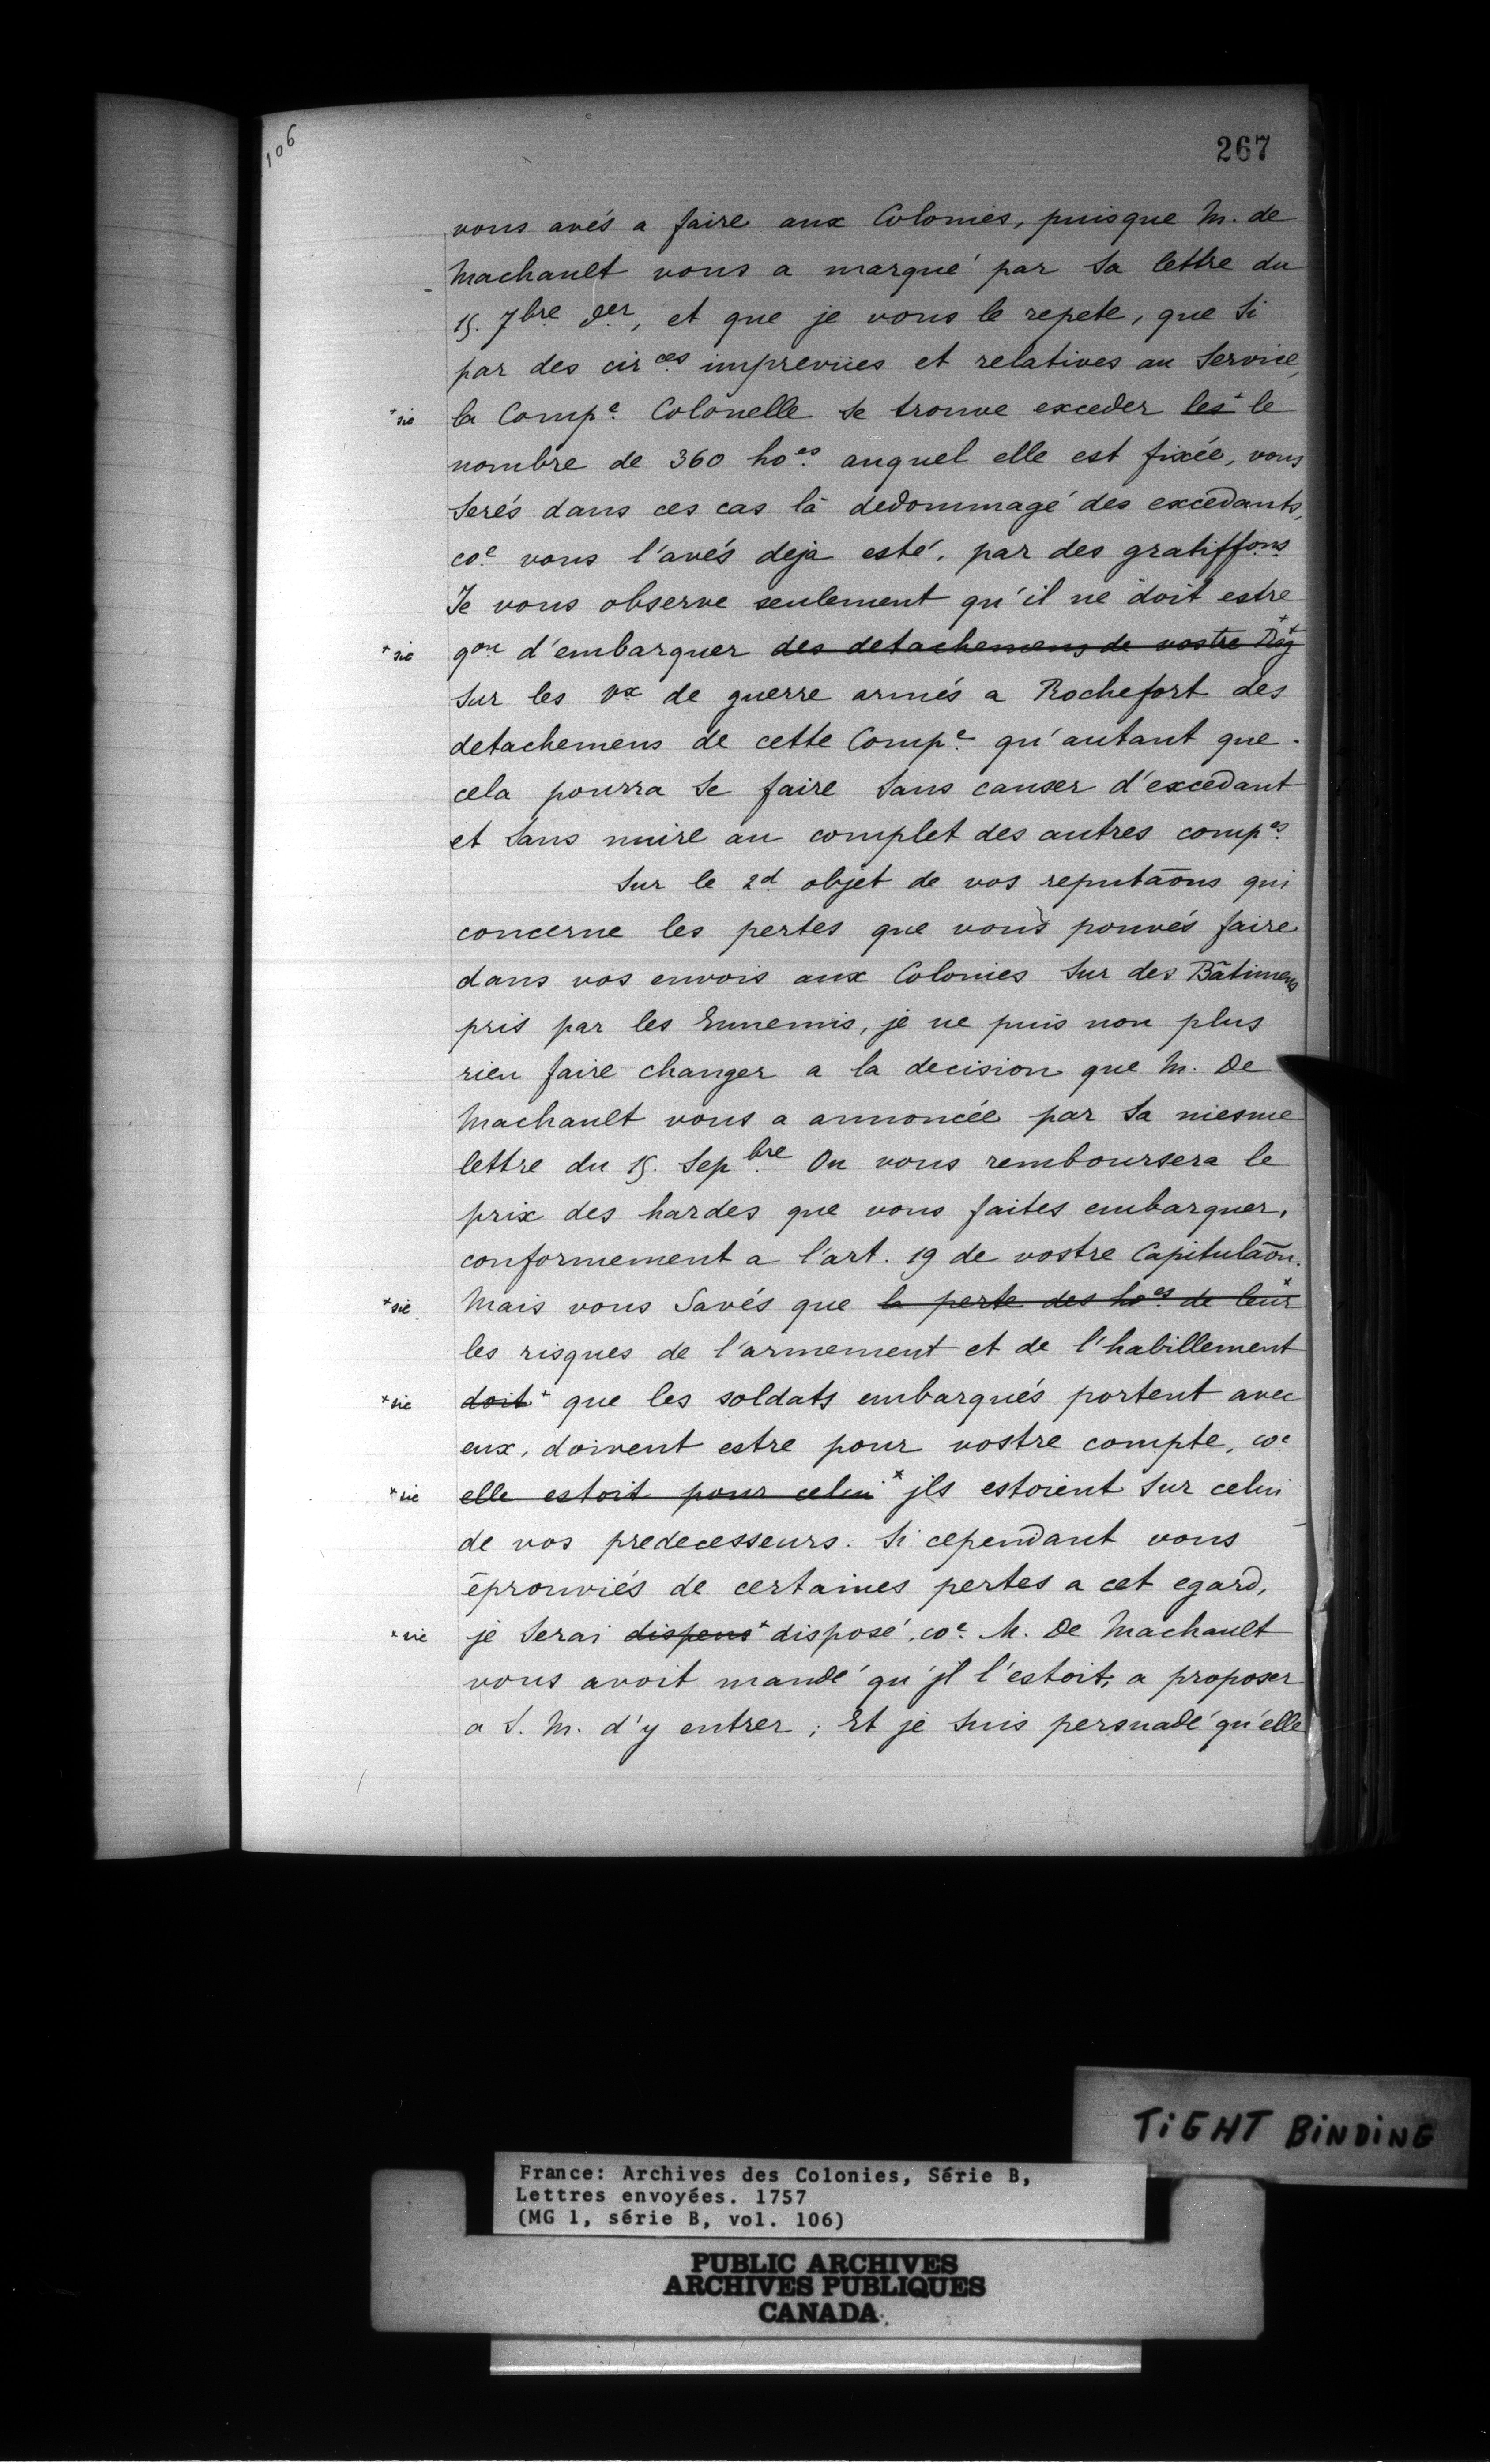 106
267
vous avés a faire aux Colonies, puisque M. de
Machault vous a marqué par Sa lettre du
15. 7bre der, et que je vous le repete, que Si
par des circes impreviies et relatives au Service,
+sic la Compe Colonelle Se trouve exceder les+ le
nombre de 360 hoes auquel elle est fixée, vous
Serés dans ces cas là dedommagé des excedants,
coe vous l'avés deja esté, par des gratiffons
Je vous observe seulement qu'il ne doit estre
+sic qon d'embarquer des detachemens de vostre Reg++
Sur les vx de guerre armés a Rochefort des
detachemens de cette Compe qu'autant que
cela pourra Se faire Sans causer d'excedant
et Sans nuire au complet des autres compes
Sur le 2d objet de vos reputāons qui
concerne les pertes que vous pouvés faire
dans vos envois aux Colonies Sur des Bâtimens
pris par les Ennemis, je ne puis non plus
rien faire changer a la decision que M. De
Machault vous a annoncée par Sa mesme
lettre du 15. Sepbre On vous remboursera le
prix des hardes que vous faites embarquer,
conformement a l'art. 19 de vostre Capitulāon.
+sic Mais vous Savés que la perte des hoes de leur+
les risques de l'armement et de l'habillement
+sic doit+ que les soldats embarqués portent avec
eux, doivent estre pour vostre compte, coe
+sic elle estoit pour celui+ jls estoient Sur celui
de vos predecesseurs. Si cependant vous
éprouviés de certaines pertes a cet egard,
+sic je Serai dispens+ disposé, coe M. De Machault
vous avoit mandé qu'jl l'estoit, a proposer
a S. M. d'y entrer; Et je Suis persuadé qu'elle
TIGHT BINDING
France: Archives des Colonies, Série B,
Lettres envoyées. 1757
(MG 1, série B, vol. 106)
PUBLIC ARCHIVES
ARCHIVES PUBLIQUES
CANADA